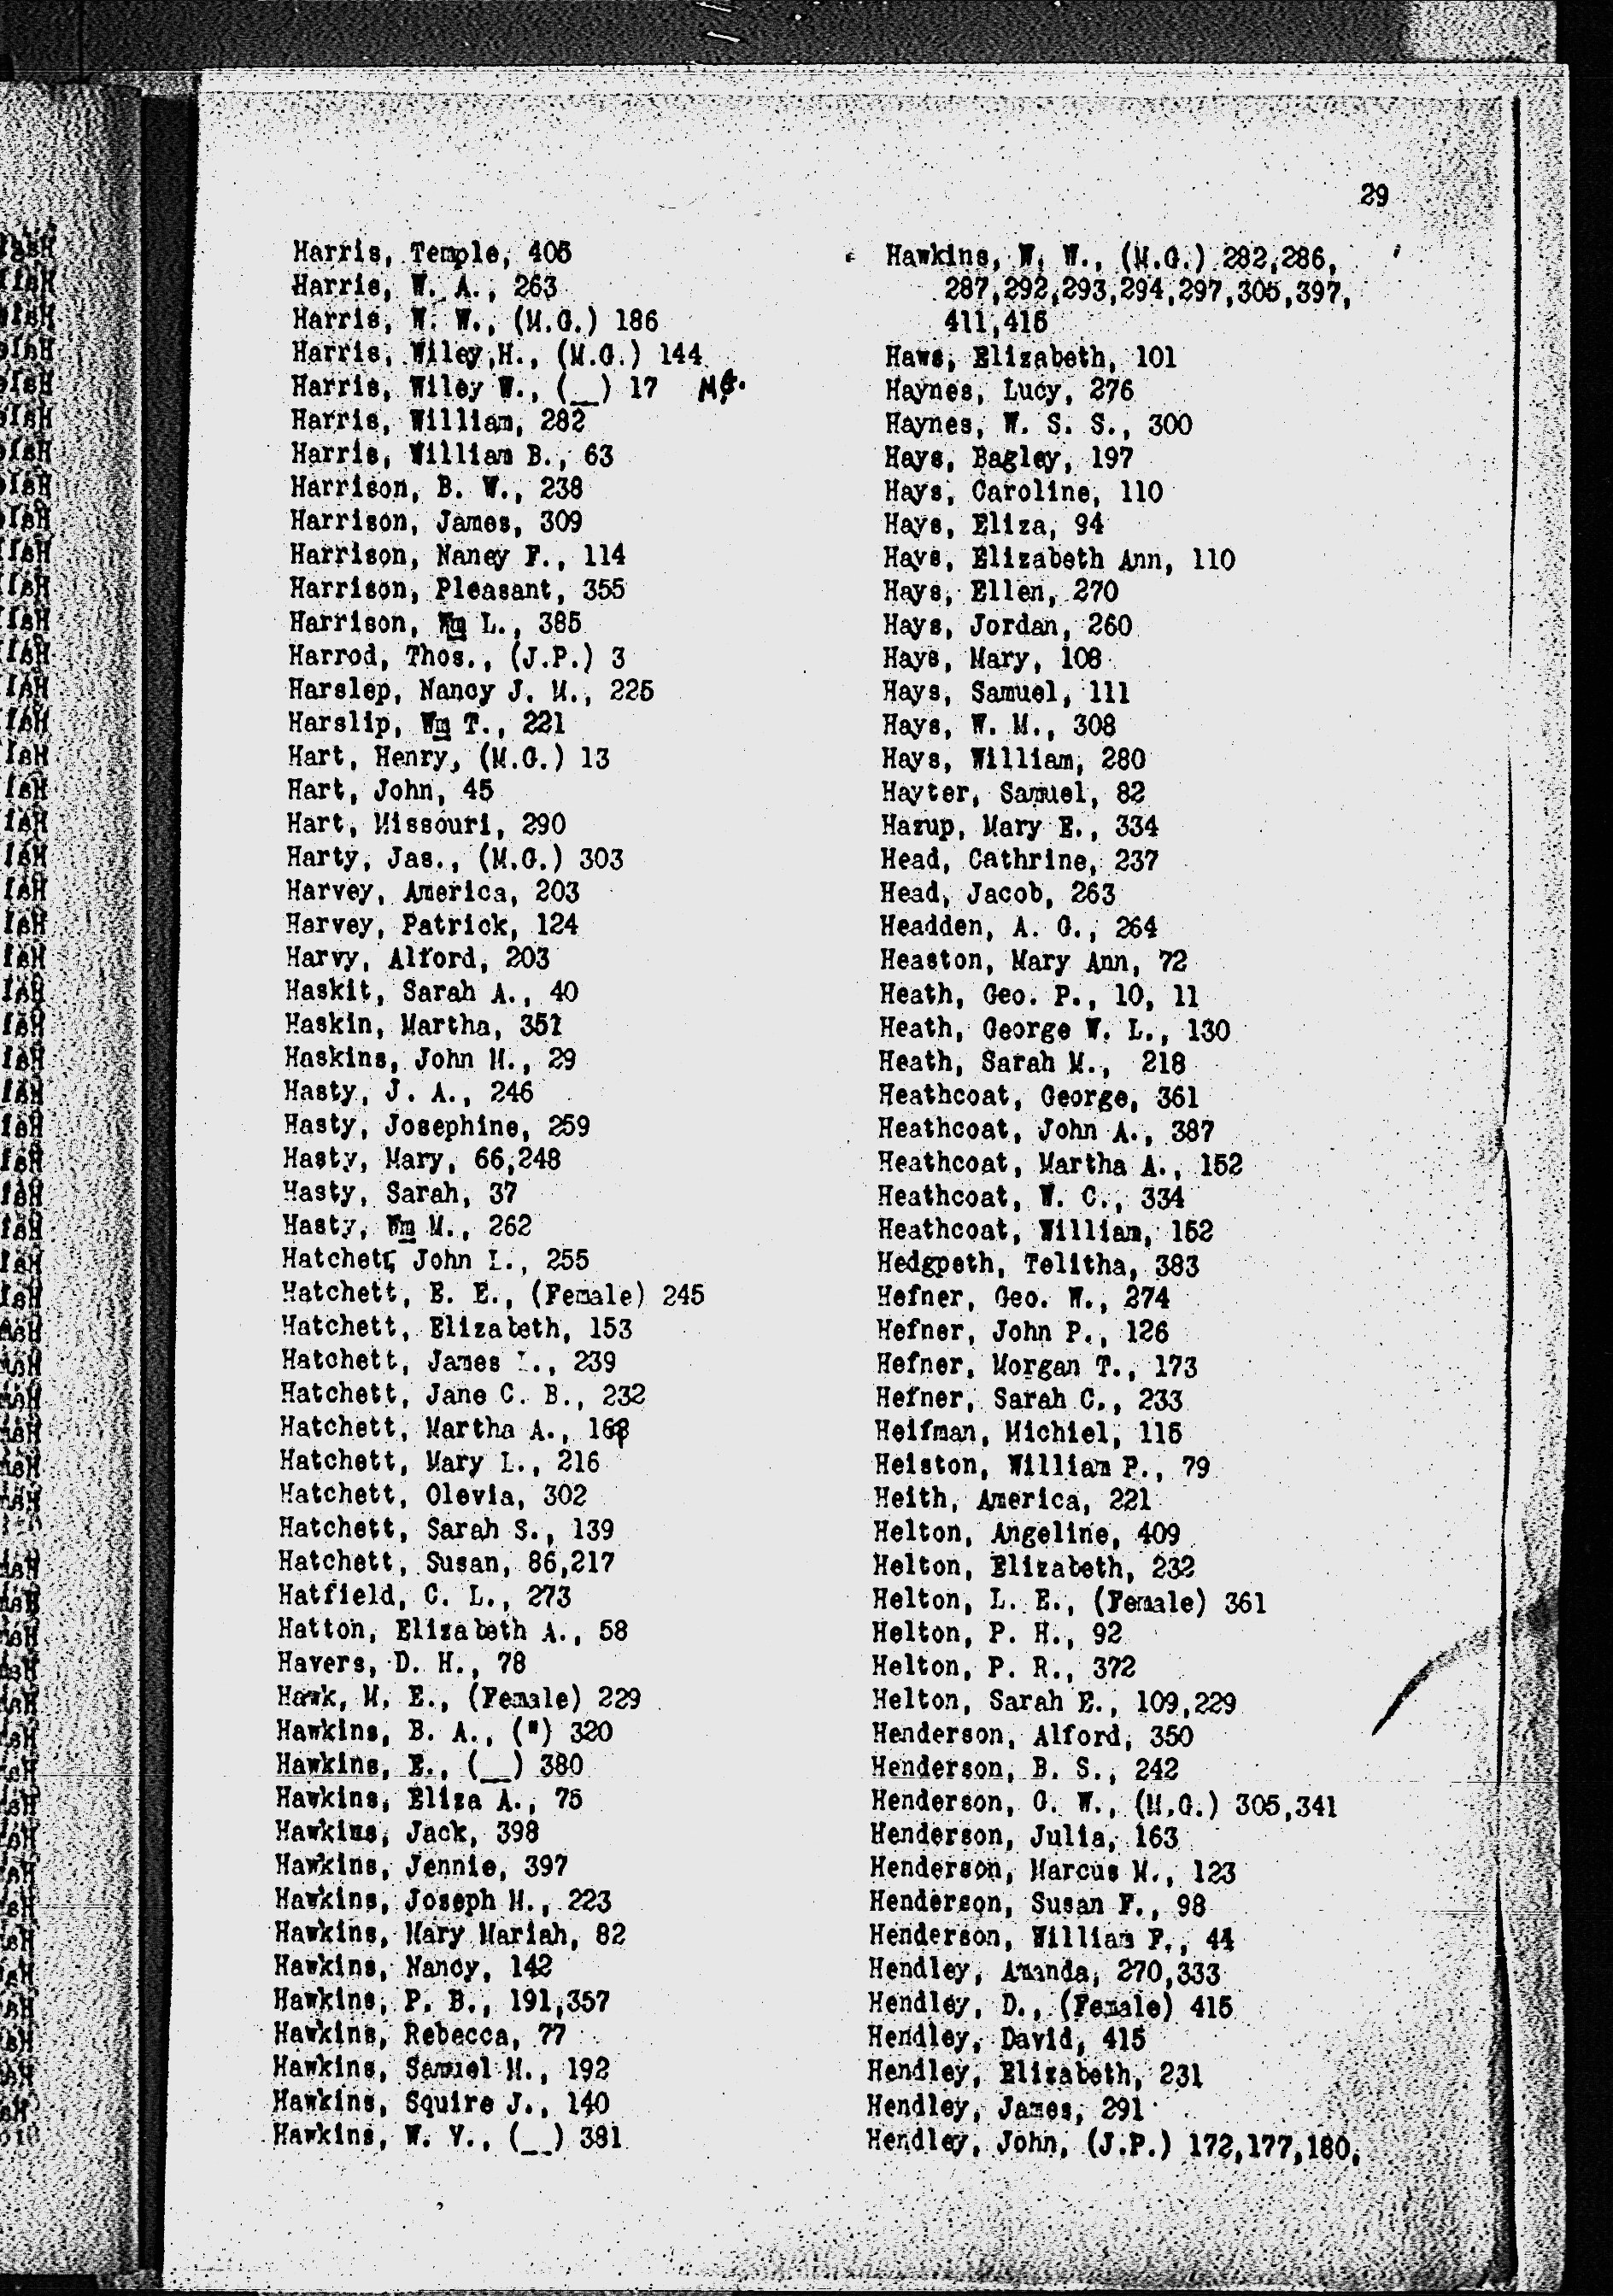 29
Harris, Temple, 405
Harris, W. A., 263
Harris, W. W., (M.G.) 186
Harris, Wiley H., (M.G.) 144
Harris, Wiley W., (__) 17 MG.
Harris, William, 282
Harris, William B., 63
Harrison, B. W., 238
Harrison, James, 309
Harrison, Nancy F., 114
Harrison, Pleasant, 355
Harrison, Wm L., 385
Harrod, Thos., (J.P.) 3
Harslep, Nancy J. M., 225
Harslip, Wm T., 221
Hart, Henry, (M.G.) 13
Hart, John, 45
Hart, Missouri, 290
Harty, Jas., (M.G.) 303
Harvey, America, 203
Harvey, Patrick, 124
Harvy, Alford, 203
Haskit, Sarah A., 40
Haskin, Martha, 351
Haskins, John H., 29
Hasty, J. A., 246
Hasty, Josephine, 259
Hasty, Mary, 66,248
Hasty, Sarah, 37
Hasty, Wm M., 262
Hatchett, John L., 255
Hatchett, E. E., (Female) 245
Hatchett, Elizabeth, 153
Hatchett, James I., 239
Hatchett, Jane C. B., 232
Hatchett, Martha A.,
Hatchett, Mary L., 216
Hatchett, Olevia, 302
Hatchett, Sarah S., 139
Hatchett, Susan, 86,217
Hatfield, C. L., 273
Hatton, Elizabeth A., 58
Havers, D. H., 78
Hawk, M. E., (Female) 229
Hawkins, B. A., (") 320
Hawkins, E., (__) 380
Hawkins, Eliza A., 75
Hawkins, Jack, 398
Hawkins, Jennie, 397
Hawkins, Joseph H., 223
Hawkins, Mary Mariah, 82
Hawkins, Nancy, 142
Hawkins, P. B., 191,357
Hawkins, Rebecca, 77
Hawkins, Samuel H., 192
Hawkins, Squire J., 140
Hawkins, W. V., (__) 381
Hawkins, W. W., (M.G.) 282,286,
287,292,293,294,297,305,397,
411,415
Haws, Elizabeth, 101
Haynes, Lucy, 276
Haynes, W. S. S., 300
Hays, Bagley, 197
Hays, Caroline, 110
Hays, Eliza, 94
Hays, Elizabeth Ann, 110
Hays, Ellen, 270
Hays, Jordan, 260
Hays, Mary, 108
Hays, Samuel, 111
Hays, W. M., 308
Hays, William, 280
Hayter, Samuel, 82
Hazup, Mary E., 334
Head, Cathrine, 237
Head, Jacob, 263
Headden, A. G., 264
Heaston, Mary Ann, 72
Heath, Geo. P., 10, 11
Heath, George W. L., 130
Heath, Sarah M., 218
Heathcoat, George, 361
Heathcoat, John A., 387
Heathcoat, Martha A., 152
Heathcoat, W. C., 334
Heathcoat, William, 152
Hedgpeth, Telitha, 383
Hefner, Geo. W., 274
Hefner, John P., 126
Hefner, Morgan T., 173
Hefner, Sarah C., 233
Heifman, Michiel, 115
Heiston, William P., 79
Heith, America, 221
Helton, Angeline, 409
Helton, Elizabeth, 232
Helton, L. E., (Female) 361
Helton, P. H., 92
Helton, P. R., 372
Helton, Sarah E., 109,229
Henderson, Alford, 350
Henderson, B. S., 242
Henderson, G. W., (M.G.) 305,341
Henderson, Julia, 163
Henderson, Marcus M., 123
Henderson, Susan F., 98
Henderson, William P., 44
Hendley, Amanda, 270,333
Hendley, D., (Female) 415
Hendley, David, 415
Hendley, Elizabeth, 231
Hendley, James, 291
Hendley, John, (J.P.) 172,177,180,